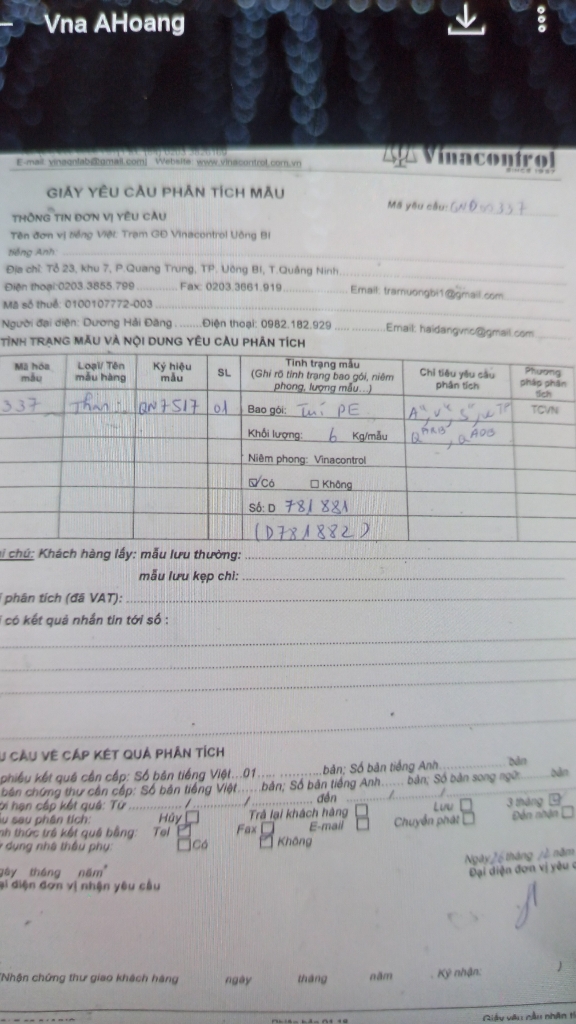 Vna AHoang
E-mail: vinaqnlab@gmail.com Website: www.vinacontrol.com.vn
Vinacontrol
GIẤY YÊU CẦU PHÂN TÍCH MẪU
Mã yêu cầu:
THÔNG TIN ĐƠN VỊ YÊU CẦU
Tên đơn vị tiếng Việt: Trạm GĐ Vinacontrol Uông Bí
tiếng Anh:
Địa chỉ: Tổ 23, khu 7, P.Quang Trung, TP. Uông Bí, T.Quảng Ninh
Điện thoại:0203.3855.799 Fax: 0203.3661.919 Email: tramuongbi1@gmail.com
Mã số thuế: 0100107772-003
Người đại diện: Dương Hải Đăng Điện thoại: 0982.182.929 Email: haidangvnc@gmail.com
TÌNH TRẠNG MẪU VÀ NỘI DUNG YÊU CẦU PHÂN TÍCH
Mã hóa mẫu Loại/ Tên mẫu hàng Ký hiệu mẫu SL Tình trạng mẫu (Ghi rõ tình trạng bao gói, niêm phong, lượng mẫu...) Chỉ tiêu yêu cầu phân tích Phương pháp phân tích
337 Than QN7517 01 Bao gói: Túi PE TCVN
Khối lượng: 6 Kg/mẫu
Niêm phong: Vinacontrol
Có Không
Số: D 781881
(D781882)
chú: Khách hàng lấy: mẫu lưu thường:
mẫu lưu kẹp chì:
phân tích (đã VAT):
có kết quả nhắn tin tới số :
CẦU VỀ CẤP KẾT QUẢ PHÂN TÍCH
phiếu kết quả cần cấp: Số bản tiếng Việt...01 bản; Số bản tiếng Anh bản
bản chứng thư cần cấp: Số bản tiếng Việt bản; Số bản tiếng Anh bản; Số bản song ngữ bản
hạn cấp kết quả: Từ / / đến / /
sau phân tích: Hủy Trả lại khách hàng Lưu 3 tháng
thức trả kết quả bằng: Tel Fax E-mail Chuyển phát Đến nhận
dụng nhà thầu phụ: Có Không
tháng năm
Ngày 26 tháng năm
đại diện đơn vị nhận yêu cầu
Đại diện đơn vị yêu
(Nhận chứng thư giao khách hàng ngày tháng năm Ký nhận: )